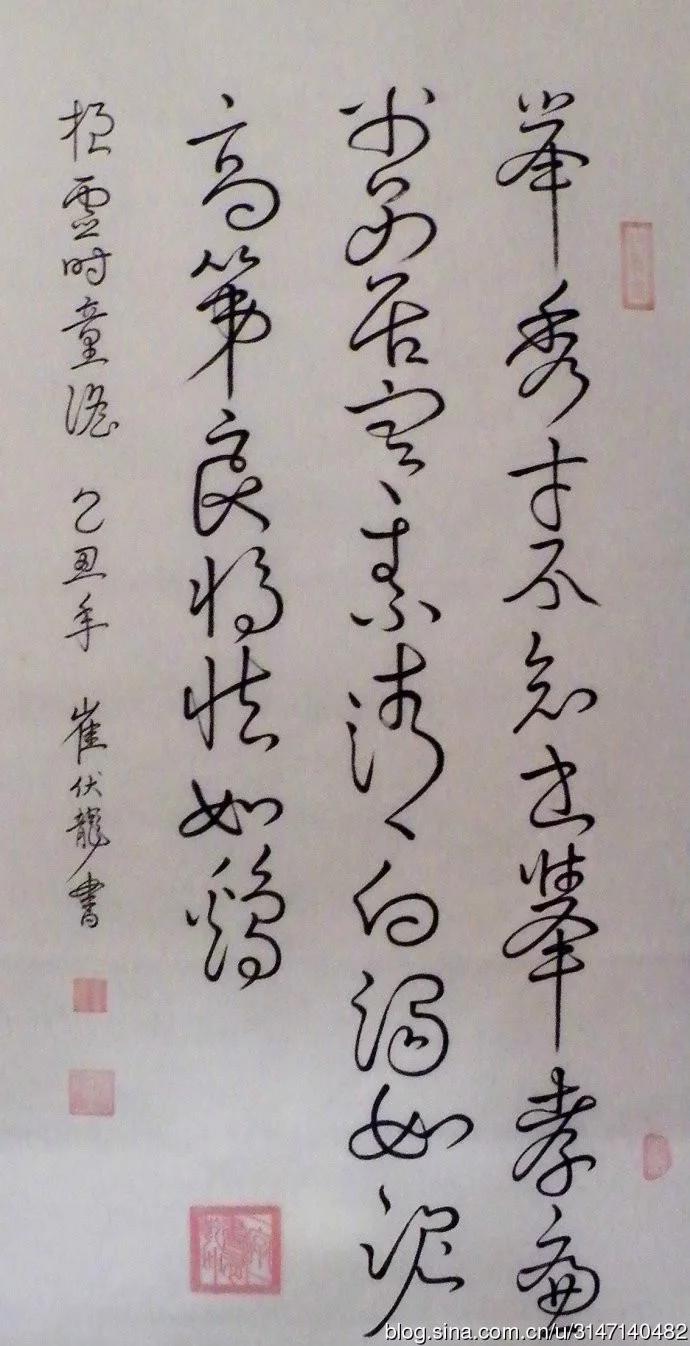 舉秀才不知書舉孝廉
父别居寒素清白濁如泥
高第良將怯如鷄
桓靈时童謠 己丑年 崔伏龍書
blog.sina.com.cn/u/3147140482